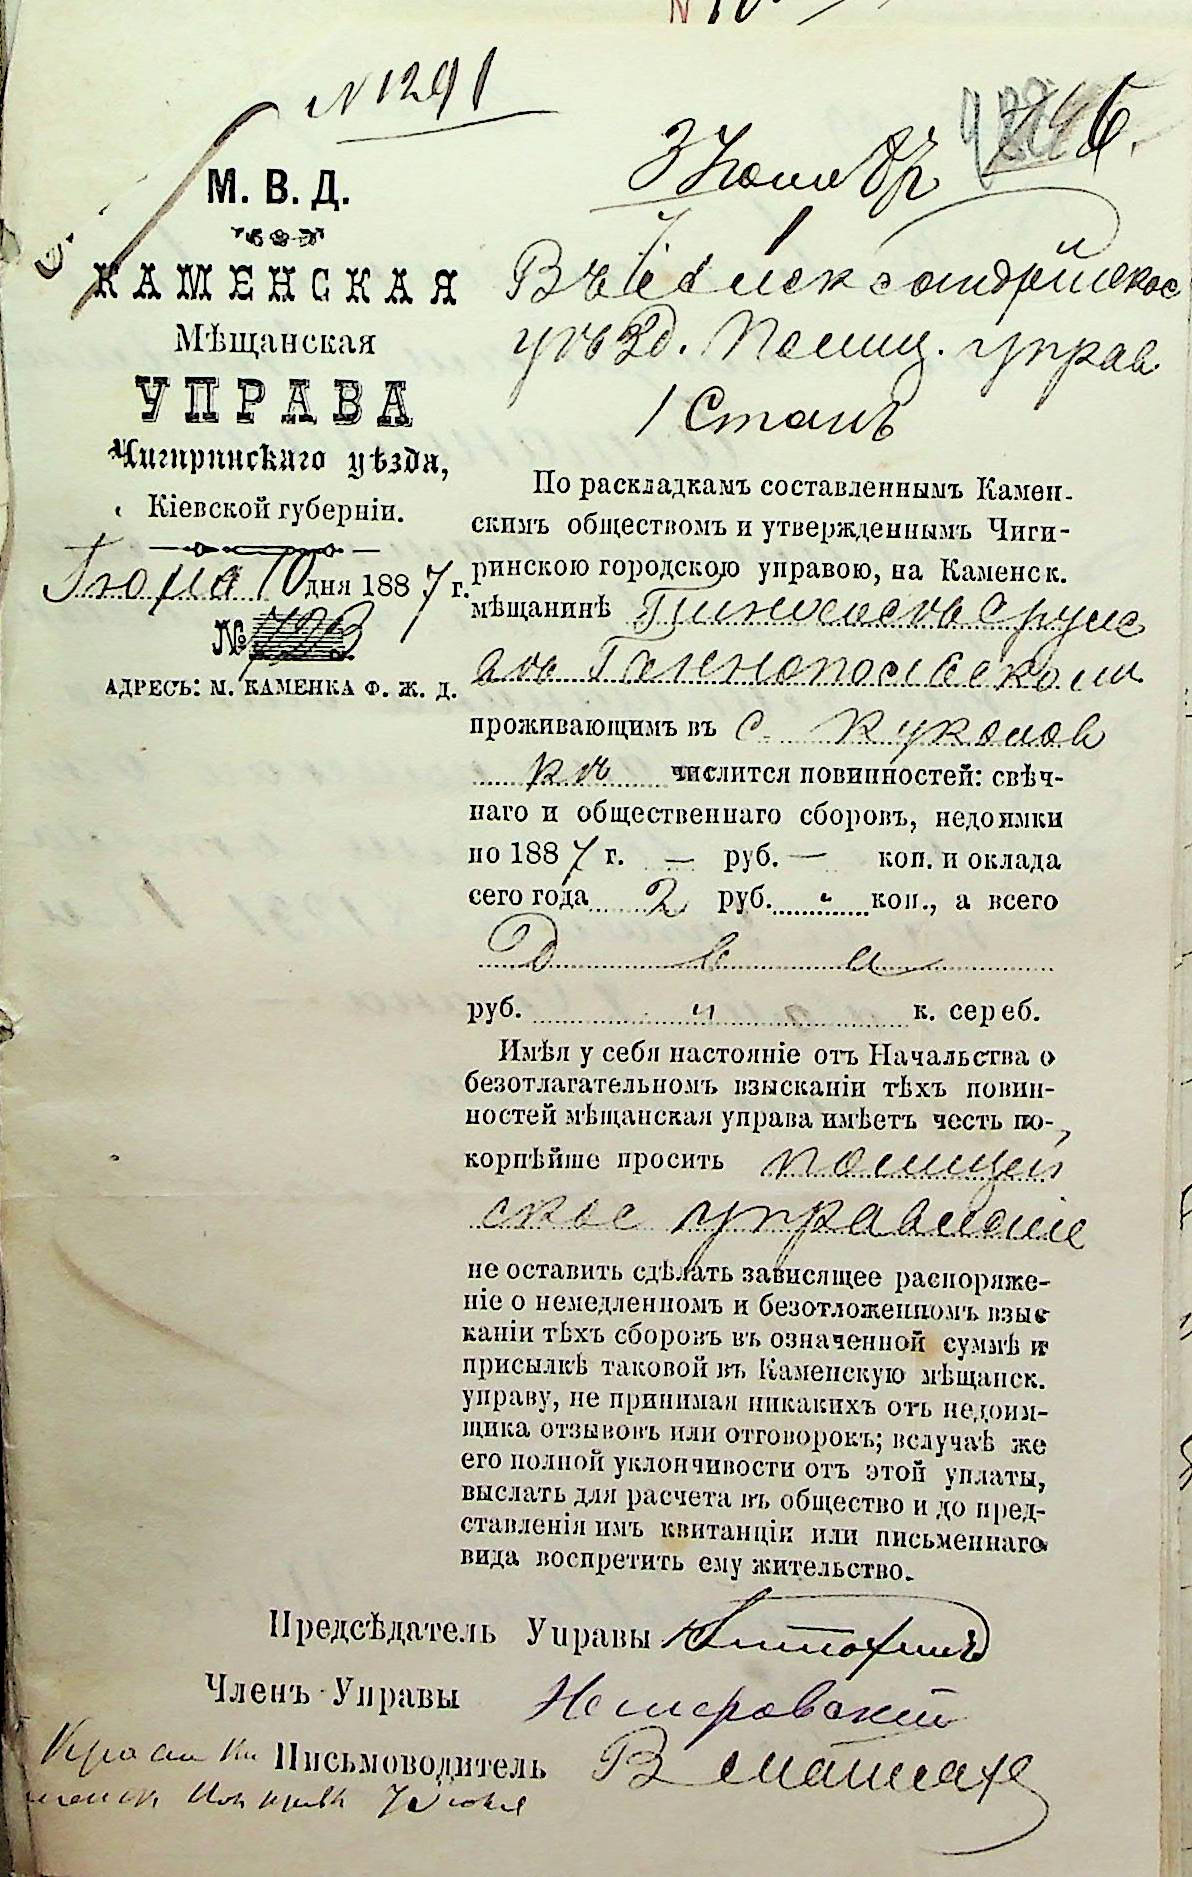 № 1291
М. В. Д.
КАМЕНСКАЯ
Мѣщанская
УПРАВА
Чигиринскаго уѣзда,
Кіевской губерніи.
10 дня 1887 г.
№ 793
АДРЕСЪ: М. КАМЕНКА Ф. Ж. Д.
Въ Александрійское
уѣзд. Полиц. управ.
1 Станъ
По раскладкамъ составленнымъ Камен-
скимъ обществомъ и утвержденнымъ Чиги-
ринскою городскою управою, на Каменск.
мѣщанинѣ
проживающимъ въ с. Куколов
кѣ числится повинностей: свѣч-
наго и общественнаго сборовъ, недоимки
по 1887 г. — руб. — коп. и оклада
сего года 2 руб. „ коп., а всего
Два
руб. „ к. сереб.
Имѣя у себя настояніе отъ Начальства о
безотлагательномъ взысканіи тѣхъ повин-
ностей мѣщанская управа имѣетъ честь по-
корнѣйше просить полицей
ское управленіе
не оставить сдѣлать зависящее распоряже-
ніе о немедленномъ и безотложенномъ взыс
каніи тѣхъ сборовъ въ означенной суммѣ и
присылкѣ таковой въ Каменскую мѣщанск.
управу, не принимая никакихъ отъ недоим-
щика отзывовъ или отговорокъ; вслучаѣ же
его полной уклончивости отъ этой уплаты,
выслать для расчета въ общество и до пред-
ставленія имъ квитанціи или письменнаго
вида воспретить ему жительство.
Предсѣдатель Управы
Членъ Управы Немеровскій
Письмоводитель В